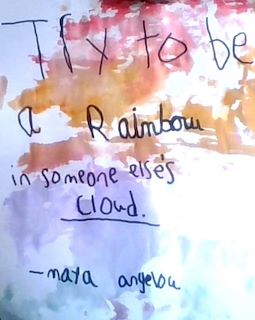 Try to be
a Rainbow
in someone else's
Cloud.
-maya angelou